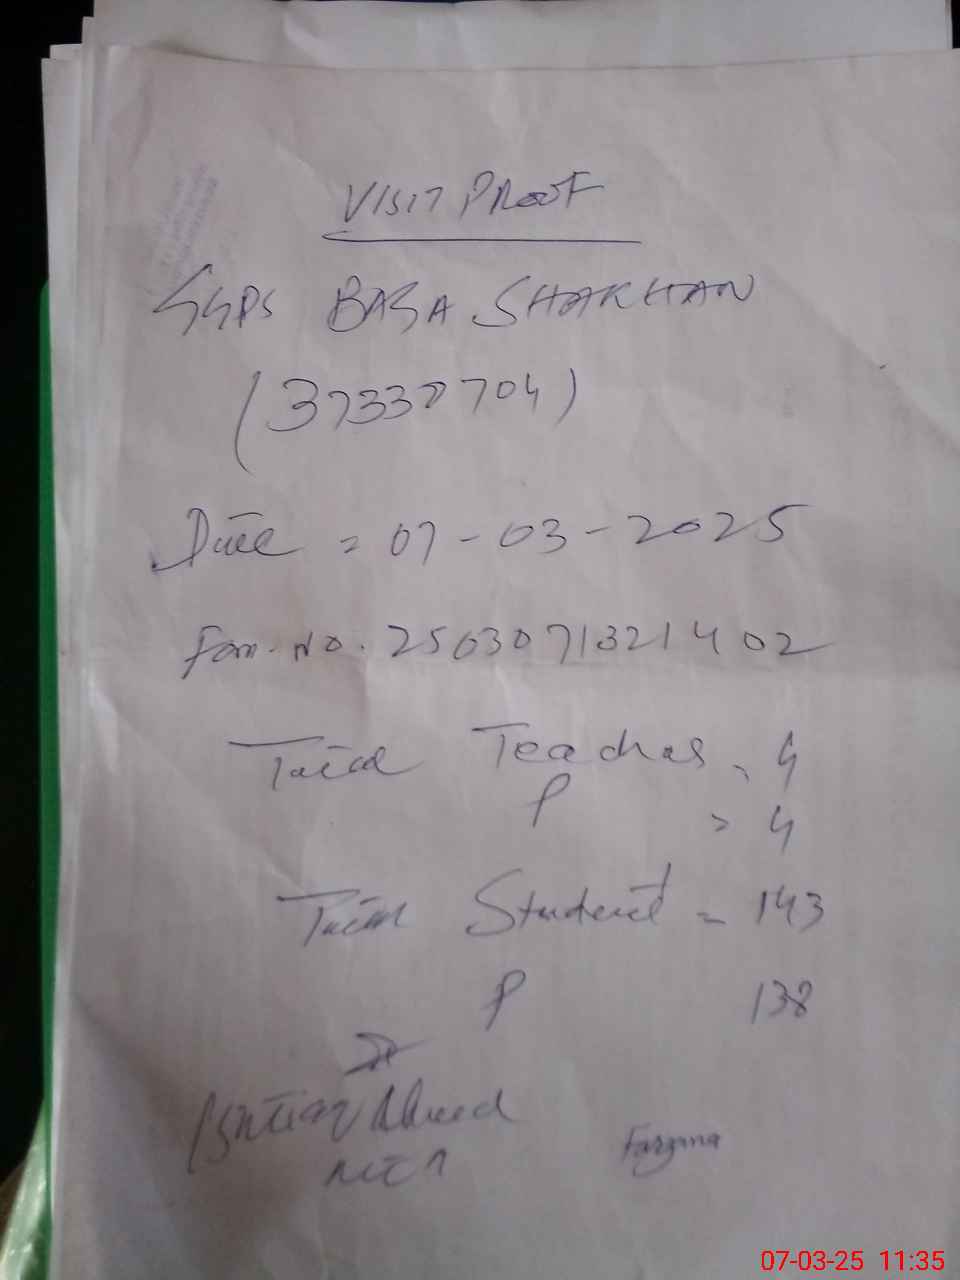 VISIT PROOF
GGPS BABA SHAKHAN
(37330704)
Date = 07-03-2025
Fom. No. 2503071321402
Total Teachers = 4
P = 4
Total Student = 143
P 138
Ishtiaq Ahmed
Farzana
07-03-25 11:35